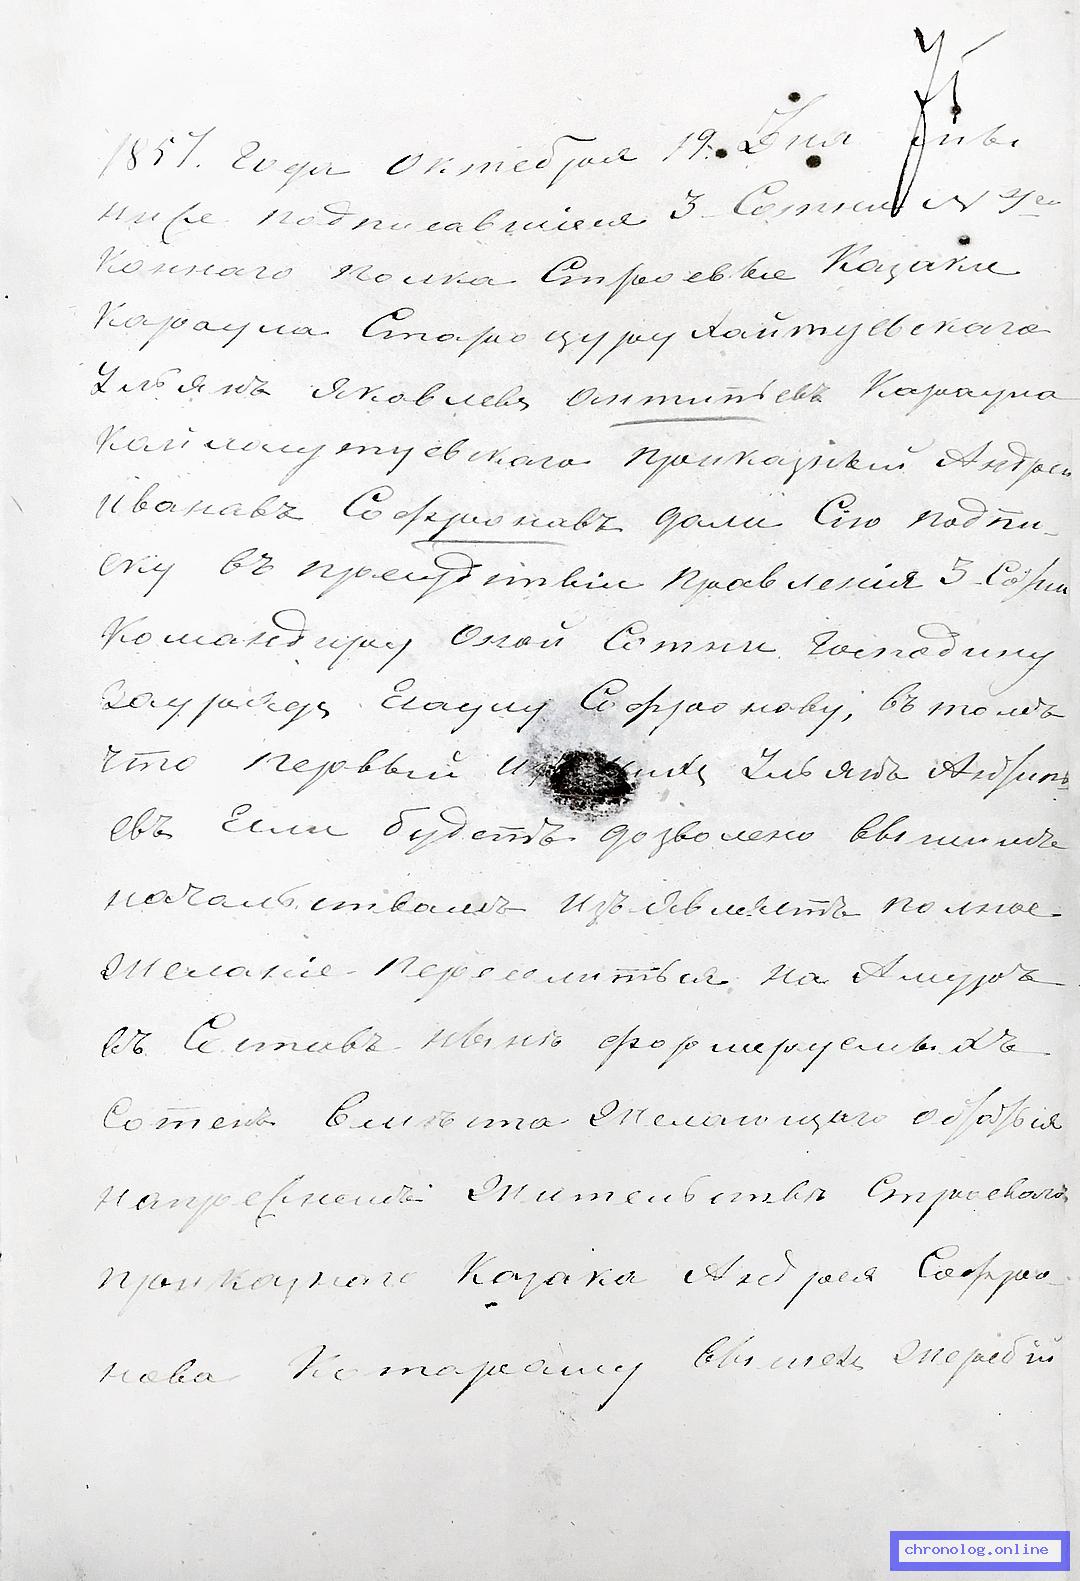 1857. Года Октебря 19. Дня Мы
ниже подписавшiеся 3 Сотни № 4го
Коннаго полка Строевые Казаки
Караула Староцурухайтуевскаго
Ульянъ Яковлевъ Онтипьевъ Караула
Кайласутуевскаго приказный Андрей
Ивановъ Софроновъ дали Сiю подпи-
ску въ присудствiи Правленiя 3 Сотни
Командиру Оной Сотни Господину
Зауряду Есаулу Софронову, въ томъ
что первый изъ нихъ Ульянъ Антипь
евъ Если будетъ дозволено вышимъ
начальствамъ изъявляетъ полное
Желанiе переселиться на Амуръ
въ Составъ нынѣ формеруемыхъ
Сотенъ вмѣсто Желающаго остатся
напрежнемъ Жительствѣ Строеваго
приказнаго Казака Андрея Софро
нова Которому вышелъ Жеребiй
chronolog.online